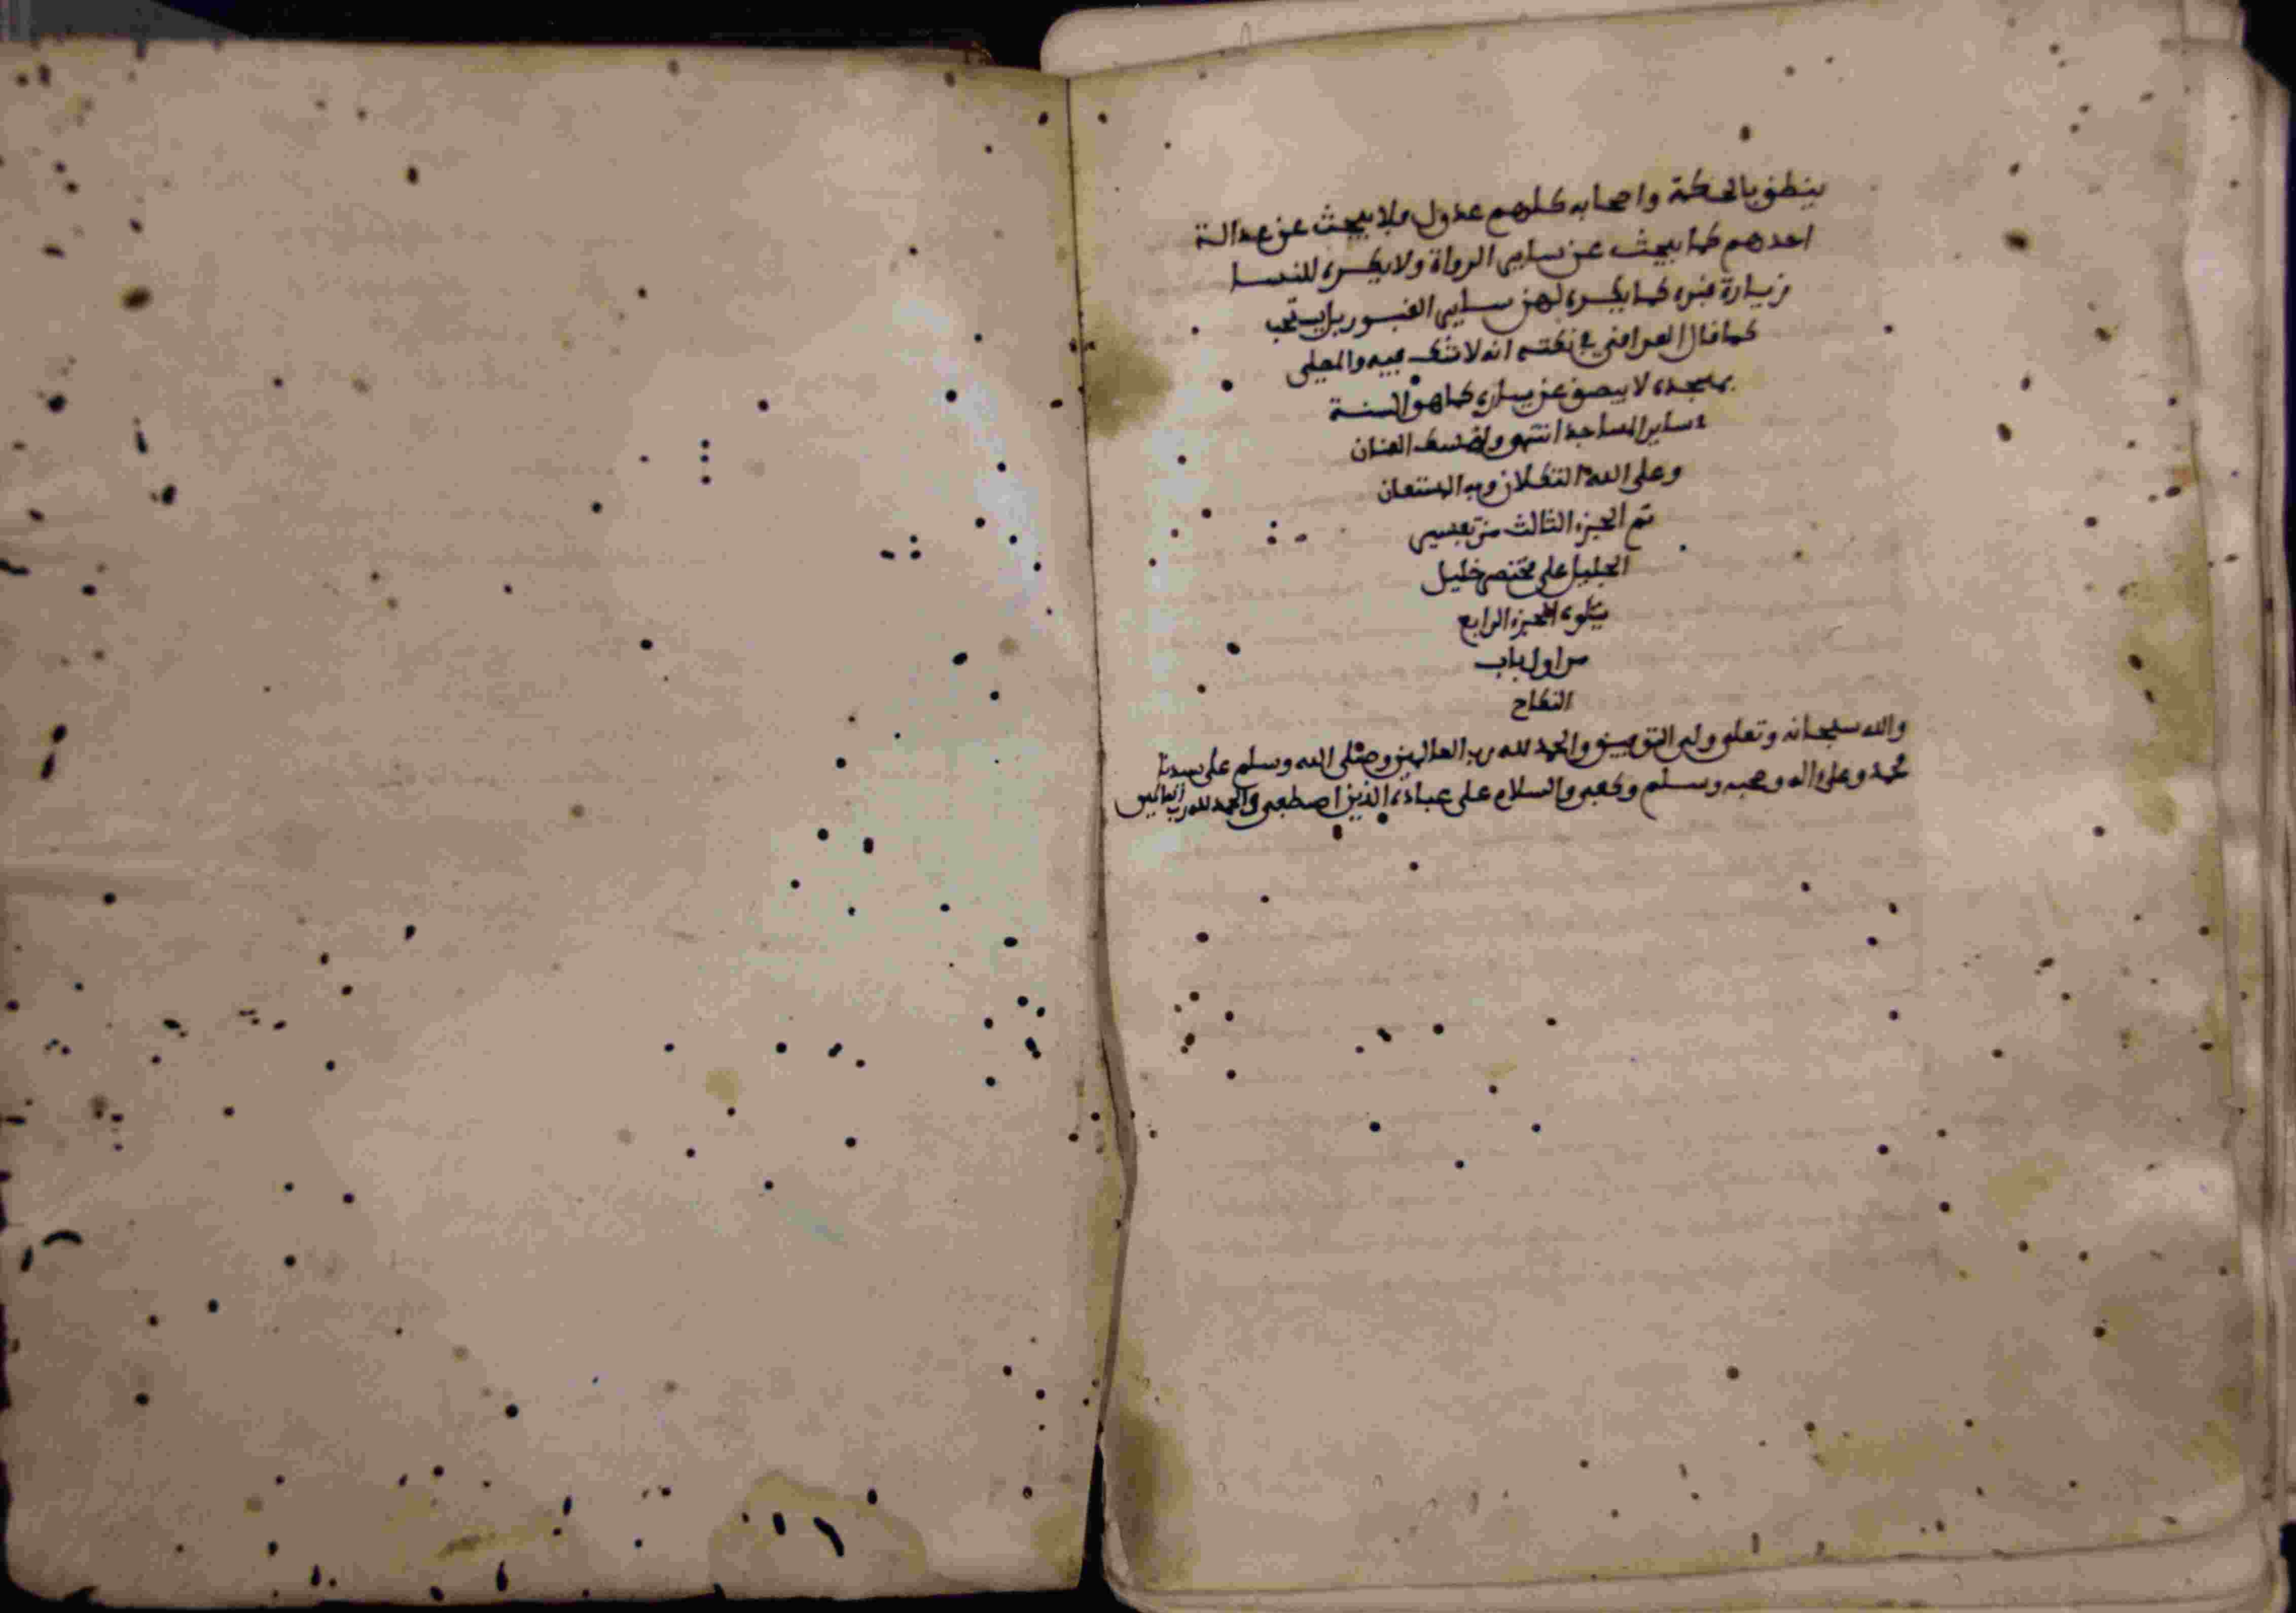 ينطق بالحكمة واصحابه كلهم عدول فلا يبحث عن عدالة
احدهم كما يبحث عن ساير الرواة ولا يكره للنسا
زيارة قبره كما يكره لهن ساير القبور بل يستحب
كما قال العراقي في نكته انه لا شك فيه والمصلى
بمسجده لا يبصق عن يساره كما هو السنة
ساير المساجد انتهى ولنمسك العنان
وعلى الله التكلان وبه المستعان
تم الجزء الثالث من تفسير
الجليل على مختصر خليل
يتلوه الجزء الرابع
من اول باب
النكاح
والله سبحانه وتعلى ولى التوفيق والحمد لله رب العالمين وصلى الله وسلم على سيدنا
محمد وعلى اله وصحبه وسلم وكفى والسلام على عباده الذين اصطفى والحمد لله رب العالمين